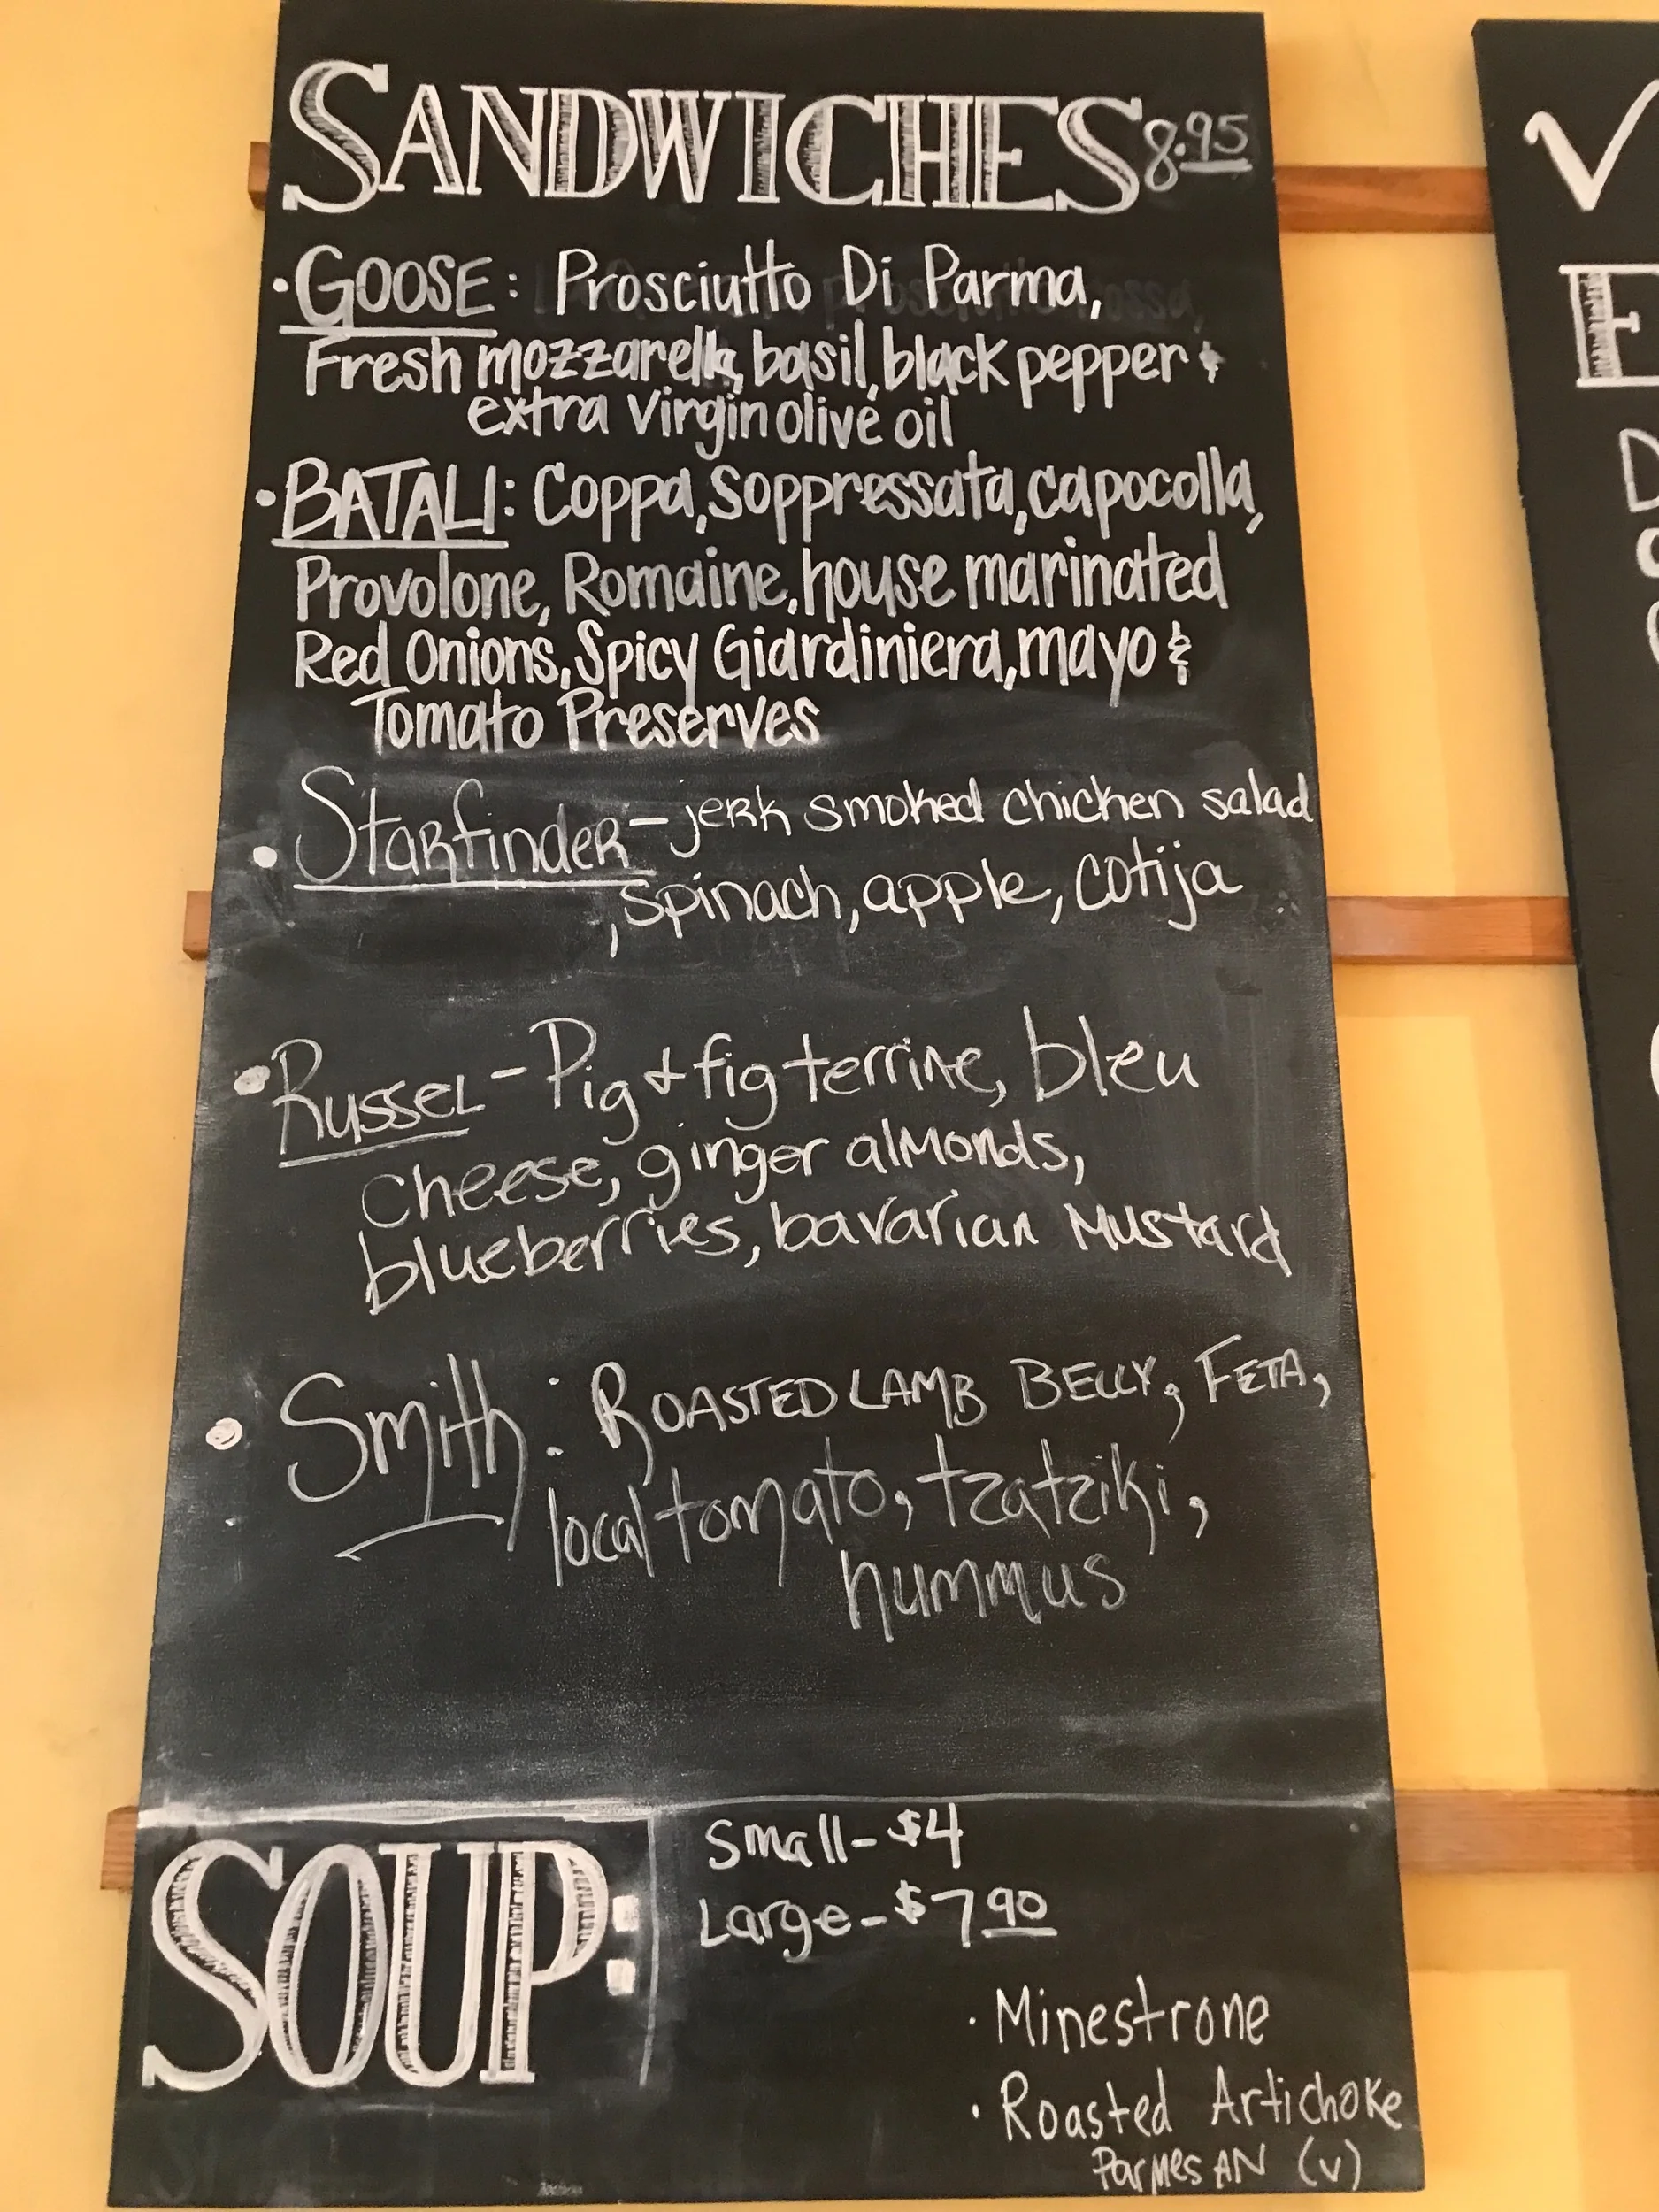 SANDWICHES 8.95
• GOOSE: Prosciutto Di Parma,
Fresh mozzarella, basil, black pepper &
extra virgin olive oil
• BATALI: Coppa, Soppressata, capocolla,
Provolone, Romaine, house marinated
Red Onions, Spicy Giardiniera, mayo &
Tomato Preserves
• Starfinder – jerk smoked chicken salad
, spinach, apple, cotija
• Russel – Pig & fig terrine, bleu
cheese, ginger almonds,
blueberries, bavarian mustard
• Smith: ROASTED LAMB BELLY, FETA,
local tomato, tzatziki,
hummus
SOUP:
Small – $4
Large – $7.90
• Minestrone
• Roasted Artichoke
Parmesan (v)